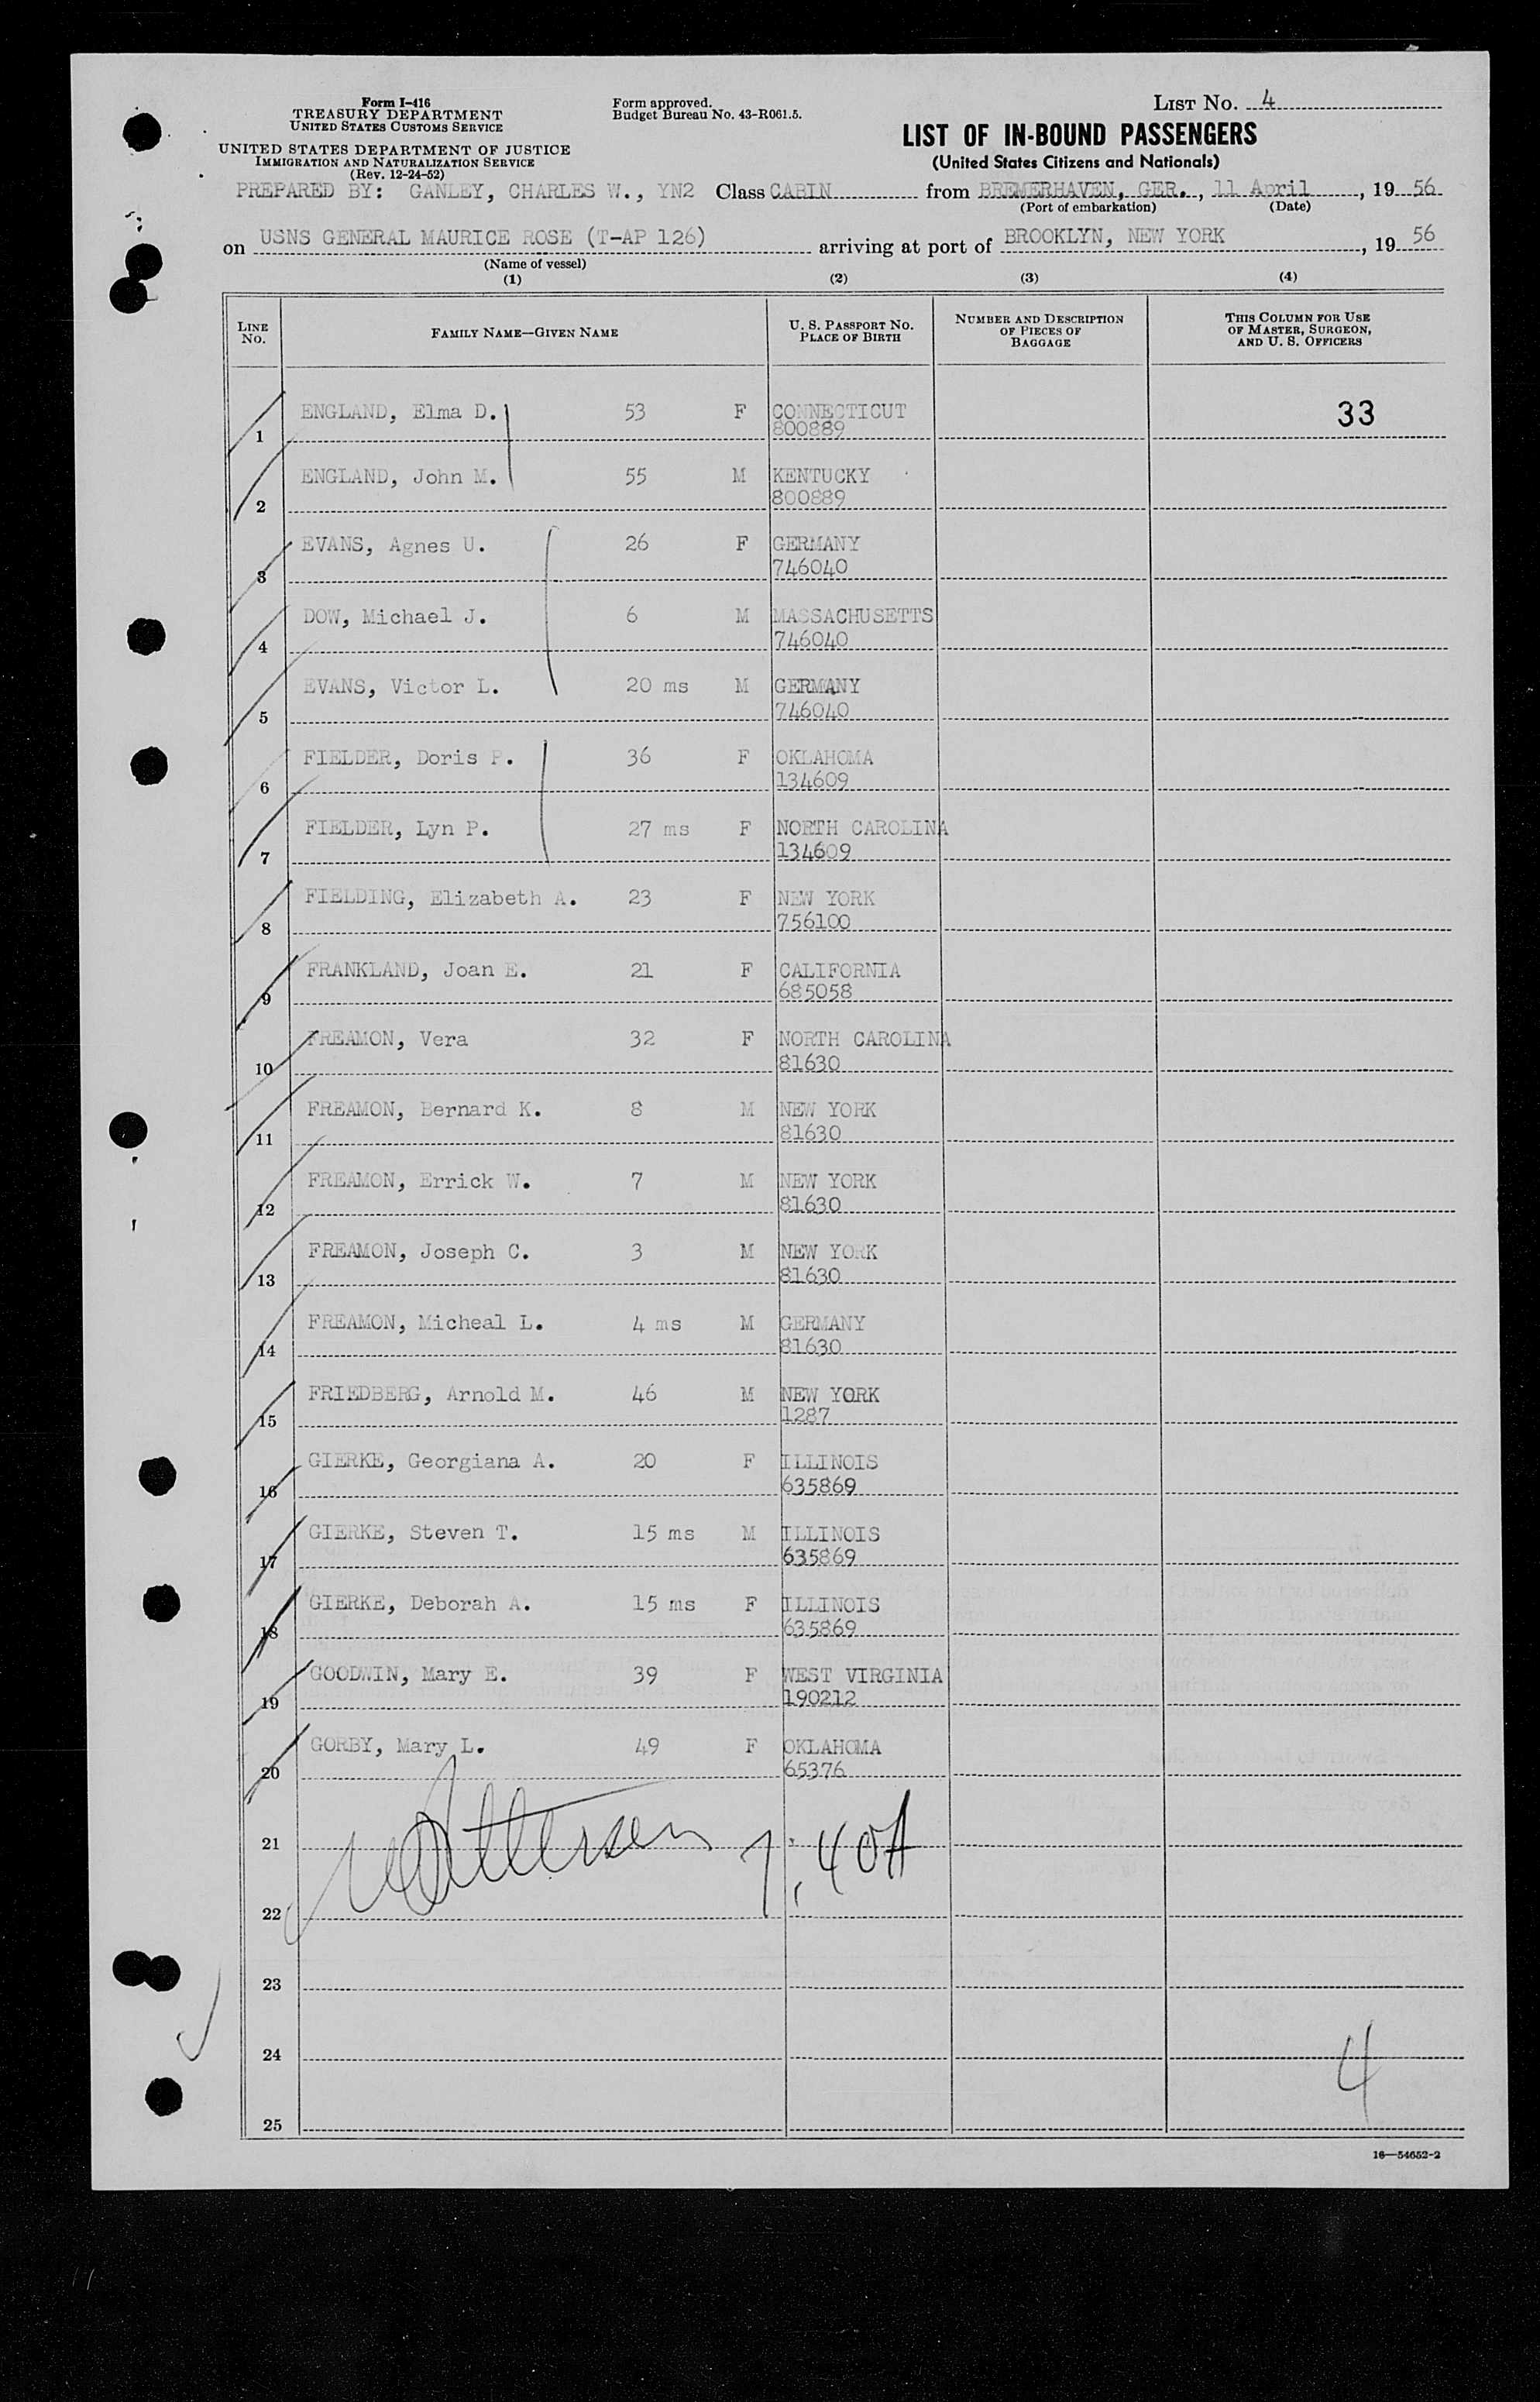 Form I-416
TREASURY DEPARTMENT
UNITED STATES CUSTOMS SERVICE
UNITED STATES DEPARTMENT OF JUSTICE
IMMIGRATION AND NATURALIZATION SERVICE
(Rev. 12-24-52)
Form approved.
Budget Bureau No. 43-R061.5.
LIST NO. 4
LIST OF IN-BOUND PASSENGERS
(United States Citizens and Nationals)
PREPARED BY: GANLEY, CHARLES W., YN2 Class CABIN from BREMERHAVEN, GER., 11 April, 19 56
(Port of embarkation) (Date)
on USNS GENERAL MAURICE ROSE (T-AP 126) arriving at port of BROOKLYN, NEW YORK, 19 56
(Name of vessel)
(1) (2) (3) (4)
LINE NO. FAMILY NAME—GIVEN NAME U. S. PASSPORT NO. PLACE OF BIRTH NUMBER AND DESCRIPTION OF PIECES OF BAGGAGE THIS COLUMN FOR USE OF MASTER, SURGEON, AND U. S. OFFICERS
1 ENGLAND, Elma D. 53 F CONNECTICUT 33
800889
2 ENGLAND, John M. 55 M KENTUCKY
800889
3 EVANS, Agnes U. 26 F GERMANY
746040
4 DOW, Michael J. 6 M MASSACHUSETTS
746040
5 EVANS, Victor L. 20 ms M GERMANY
746040
6 FIELDER, Doris P. 36 F OKLAHOMA
134609
7 FIELDER, Lyn P. 27 ms F NORTH CAROLINA
134609
8 FIELDING, Elizabeth A. 23 F NEW YORK
756100
9 FRANKLAND, Joan E. 21 F CALIFORNIA
685058
10 FREAMON, Vera 32 F NORTH CAROLINA
81630
11 FREAMON, Bernard K. 8 M NEW YORK
81630
12 FREAMON, Errick W. 7 M NEW YORK
81630
13 FREAMON, Joseph C. 3 M NEW YORK
81630
14 FREAMON, Micheal L. 4 ms M GERMANY
81630
15 FRIEDBERG, Arnold M. 46 M NEW YORK
1287
16 GIERKE, Georgiana A. 20 F ILLINOIS
635869
17 GIERKE, Steven T. 15 ms M ILLINOIS
635869
18 GIERKE, Deborah A. 15 ms F ILLINOIS
635869
19 GOODWIN, Mary E. 39 F WEST VIRGINIA
190212
20 GORBY, Mary L. 49 F OKLAHOMA
65376
21
22
23
24
4
25
16—54652-2